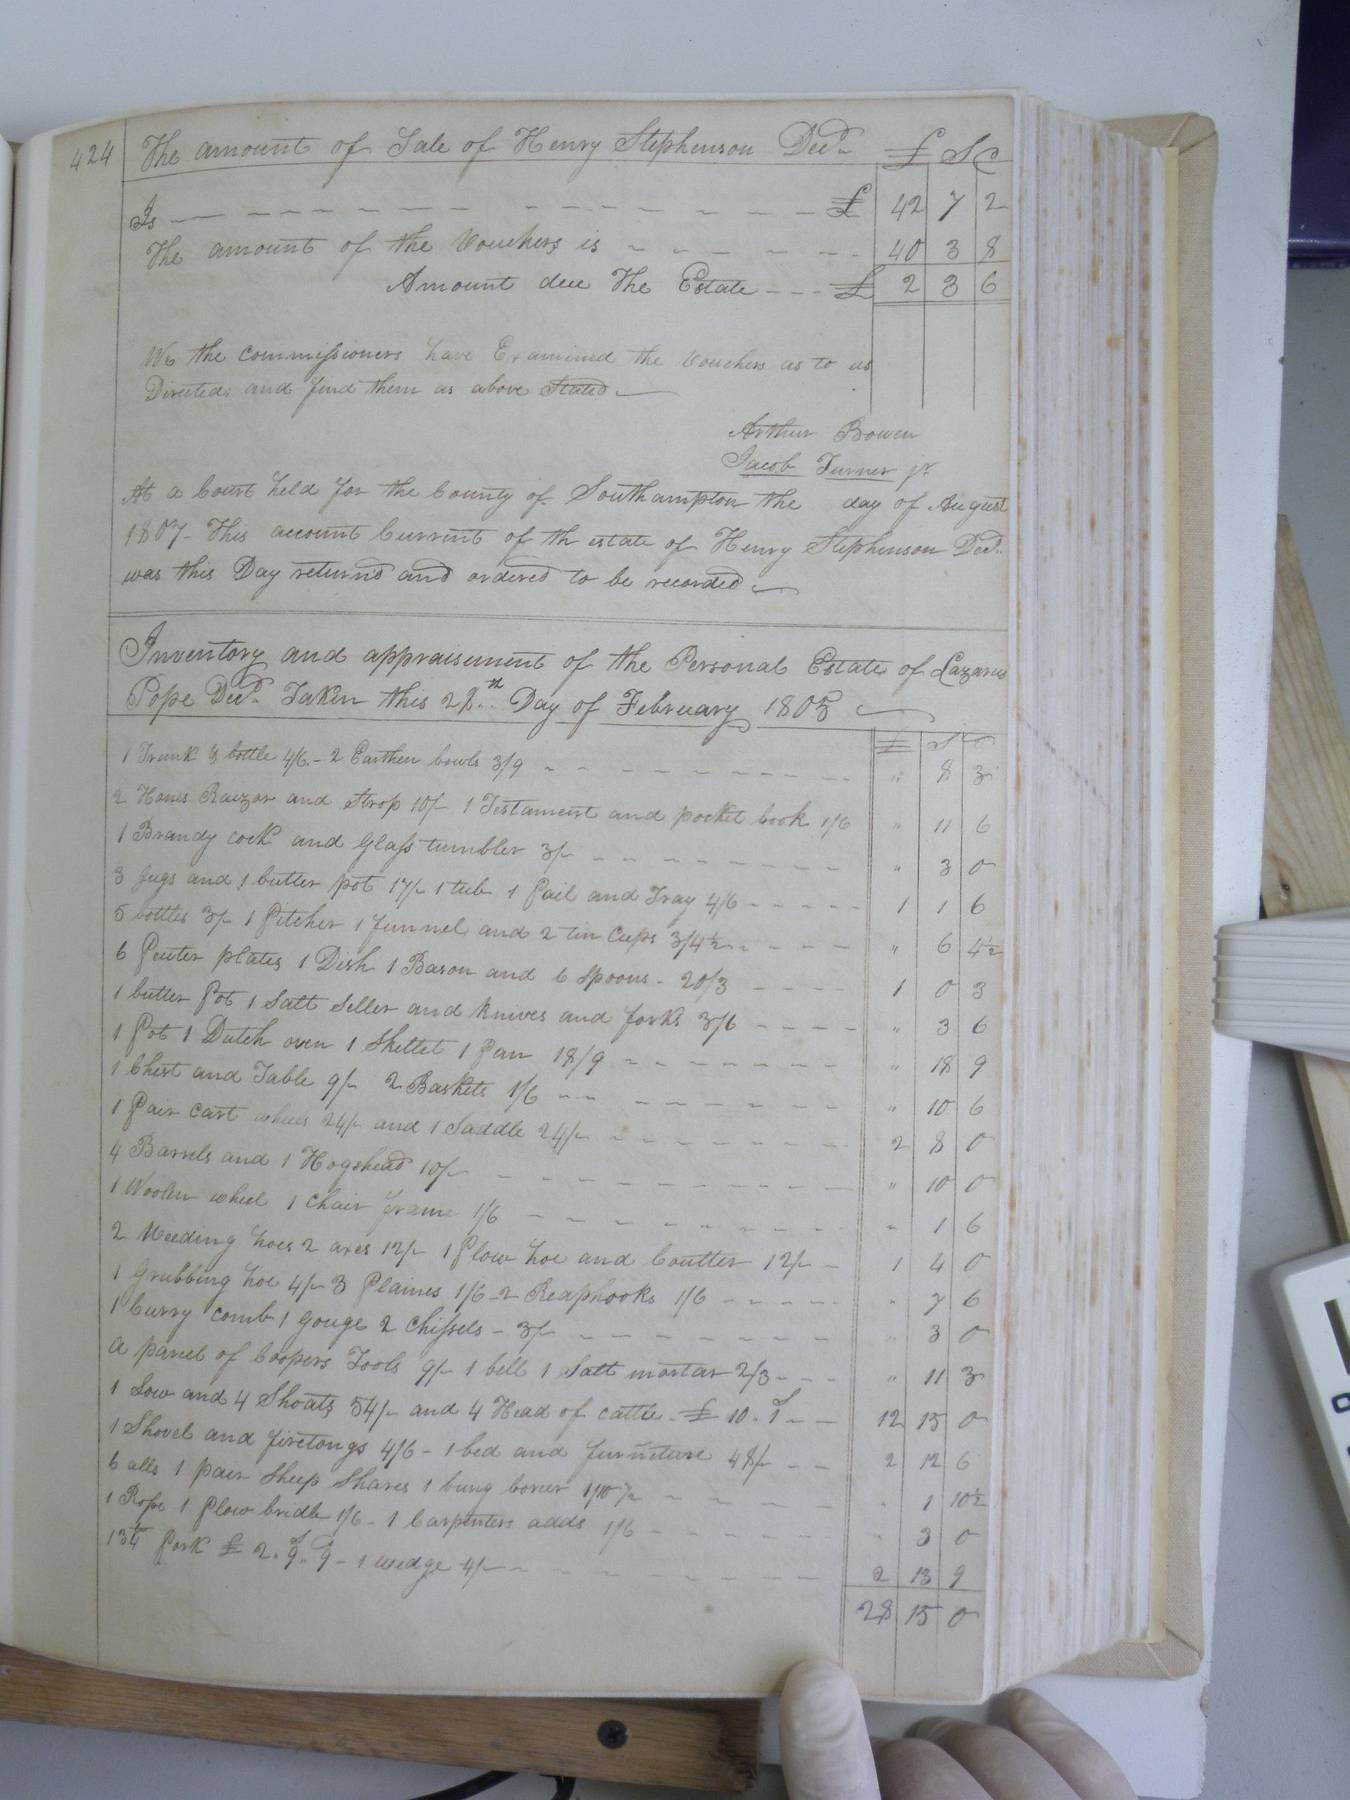 424 The amount of Sale of Henry Stephenson Decd. £ S D
Is £ 42 7 2
The amount of the Vouchers is 40 3 8
Amount due The Estate £ 2 3 6
We the commissioners have Examined the Vouchers as to us
Directed and find them as above Stated
Arthur Bowen
Jacob Turner jr
At a Court held for the County of Southampton the day of August
1807 This account Current of th estate of Henry Stephenson Decd.
was this Day returnd and ordered to be recorded
Inventory and appraisement of the Personal Estate of Lazarus
Pope Decd. Taken this 28th Day of February 1805
£ S D
1 Trunk & bottle 4/6 - 2 Earthen bowls 3/9 " 8 3
2 Hones Raizor and Strop 10/- 1 Testament and pocket book 1/6 " 11 6
1 Brandy cock and Glass tumbler 3/- " 3 0
3 Jugs and 1 butter pot 17/- 1 tub 1 Pail and Tray 4/6 1 1 6
5 bottles 3/- 1 Pitcher 1 funnel and 2 tin Cups 3/4½ " 6 4½
6 Peuter plates 1 Dish 1 Bason and 6 Spoons - 20/3 1 0 3
1 butter Pot 1 Salt Seller and knives and forks 3/6 " 3 6
1 Pot 1 Dutch oven 1 Skellet 1 Pan 18/9 " 18 9
1 Chest and Table 9/- 2 Baskets 1/6 " 10 6
1 Pair cart wheels 24/- and 1 Saddle 24/- 2 8 0
4 Barrels and 1 Hogshead 10/- " 10 0
1 Woolen wheel 1 Chair frame 1/6 " 1 6
2 Weeding hoes 2 axes 12/- 1 Plow hoe and Coulter 12/- 1 4 0
1 Grubbing hoe 4/- 3 Plaines 1/6 - 2 Reaphooks 1/6 " 7 6
1 Curry comb 1 gouge 2 Chissels - 3/- " 3 0
A parcel of Coopers Tools 9/- 1 bell 1 Salt mortar 2/3 " 11 3
1 Sow and 4 Shoats 54/- and 4 Head of cattle - £ 10.1 12 15 0
1 Shovel and firetongs 4/6 - 1 bed and furniture 48/- 2 12 6
6 alls 1 pair Sheep Shares 1 bung borer 1/10½ " 1 10½
1 Rope 1 Plow bridle 1/6 - 1 Carpenters adds 1/6 " 3 0
Pork £ 2.9.9 - 1 wedge 4/- 2 13 9
28 15 0